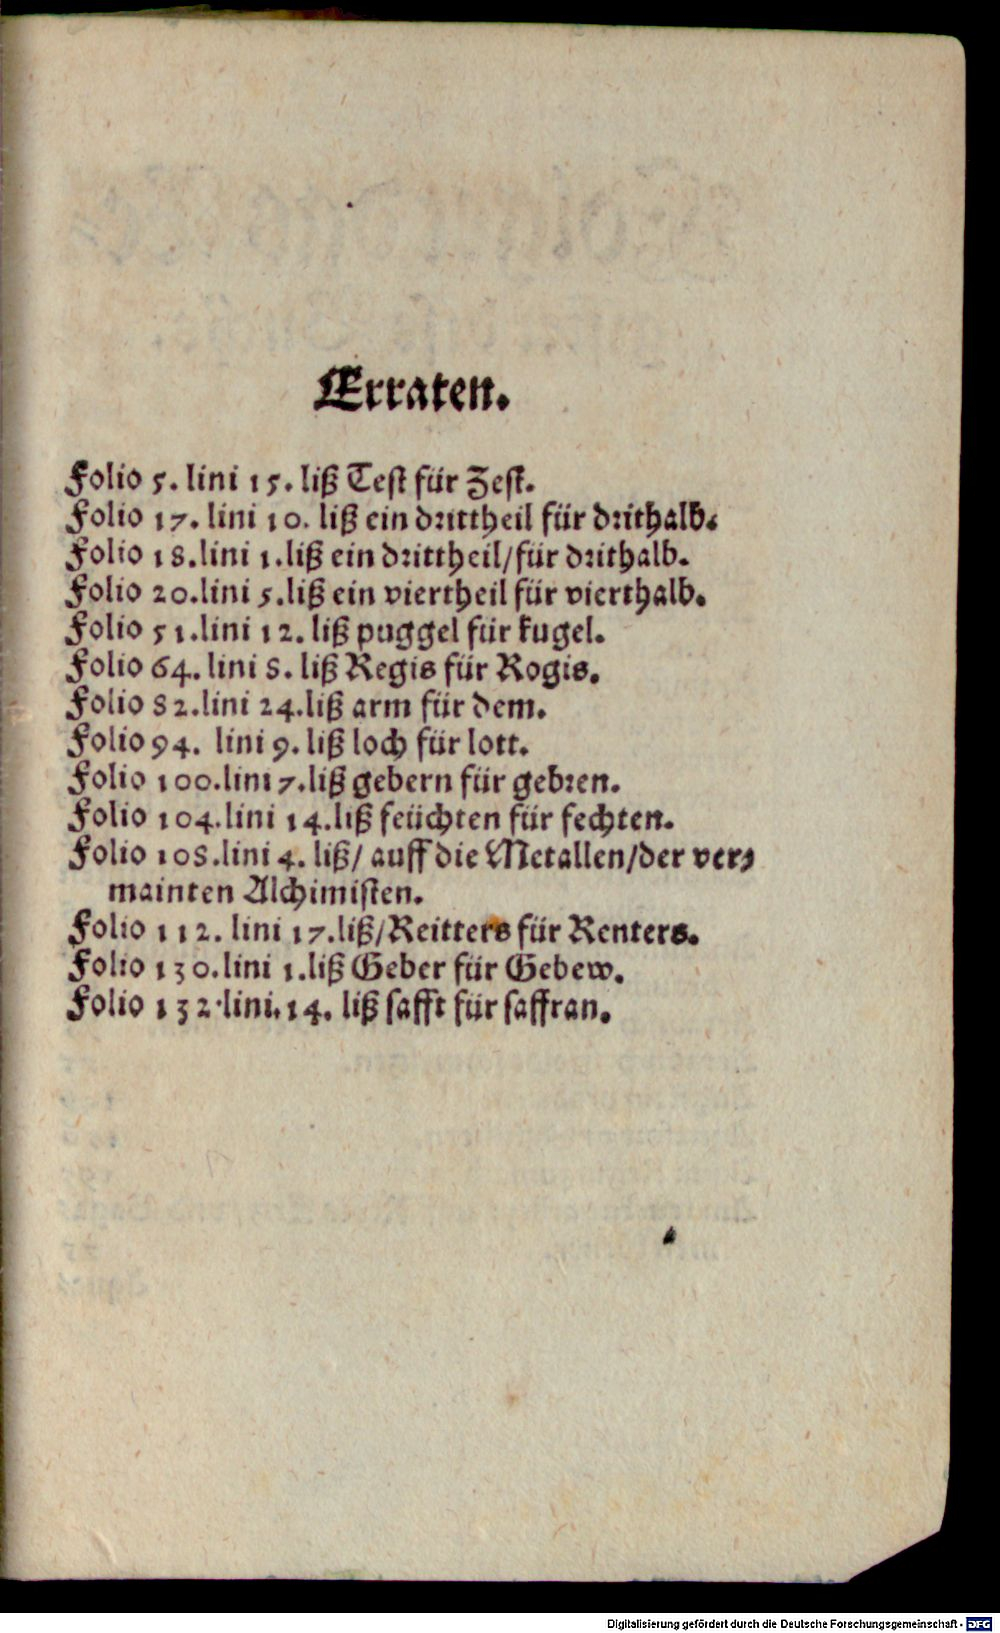 Erraten.
Folio 5. lini 15. liß Test für Zest.
Folio 17. lini 10. liß ein drittheil für drithalb.
Folio 18. lini 1. liß ein drittheil/für drithalb.
Folio 20. lini 5. liß ein viertheil für vierthalb.
Folio 51. lini 12. liß puggel für kugel.
Folio 64. lini 8. liß Regis für Rogis.
Folio 82. lini 24. liß arm für dem.
Folio 94. lini 9. liß loch für lott.
Folio 100. lini 7. liß gebern für gebren.
Folio 104. lini 14. liß feüchten für fechten.
Folio 108. lini 4. liß/ auff die Metallen/der ver⸗
mainten Alchimisten.
Folio 112. lini 17. liß/Reitters für Renters.
Folio 130. lini 1. liß Geber für Gebew.
Folio 132. lini. 14. liß safft für saffran.
Digitalisierung gefördert durch die Deutsche Forschungsgemeinschaft - DFG